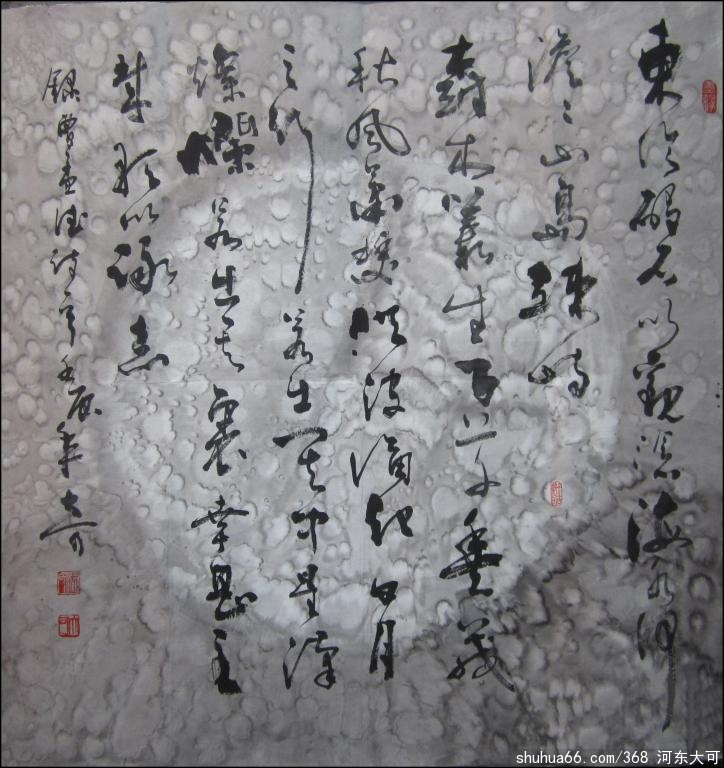 東臨碣石以觀滄海水何
澹々山島竦峙
樹木叢生百草豐茂
秋風蕭瑟洪波涌起日月
之行若出其中星漢
燦爛若出其裏幸甚至
哉歌以詠志
錄曹孟德詩壬辰年大可
shuhua66.com/368 河东大可